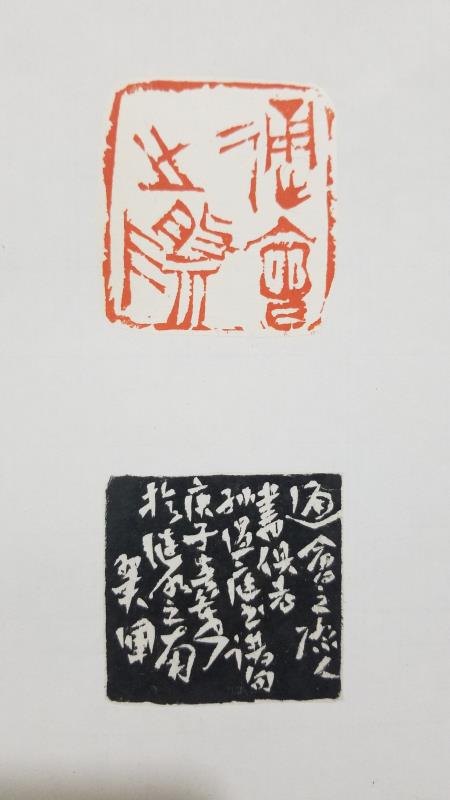 通會
之際
通會之際人
書俱老
孫過庭書譜句
庚子
於之南